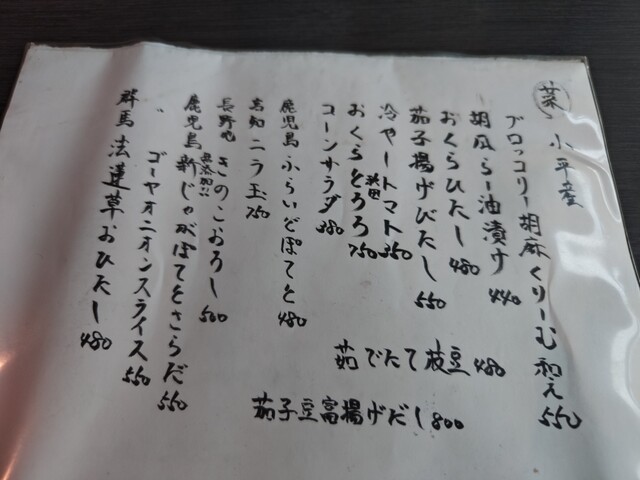 菜 小平産
ブロッコリー胡麻くりーむ和え 550
胡瓜らー油漬け 440
おくらひたし 480
茄子揚げびたし 550
冷やートマト 350
おくらとろろ 750
コーンサラダ 380
鹿児島 ふらいどぽてと 480
高知 ニラ玉 750
長野 きのこおろし 500
無添加!!
鹿児島 新じゃがぽてとさらだ 550
〃 ゴーヤオニオンスライス 550
群馬 法蓮草おひたし 480
茹でたて枝豆 480
茄子豆富揚げだし 800